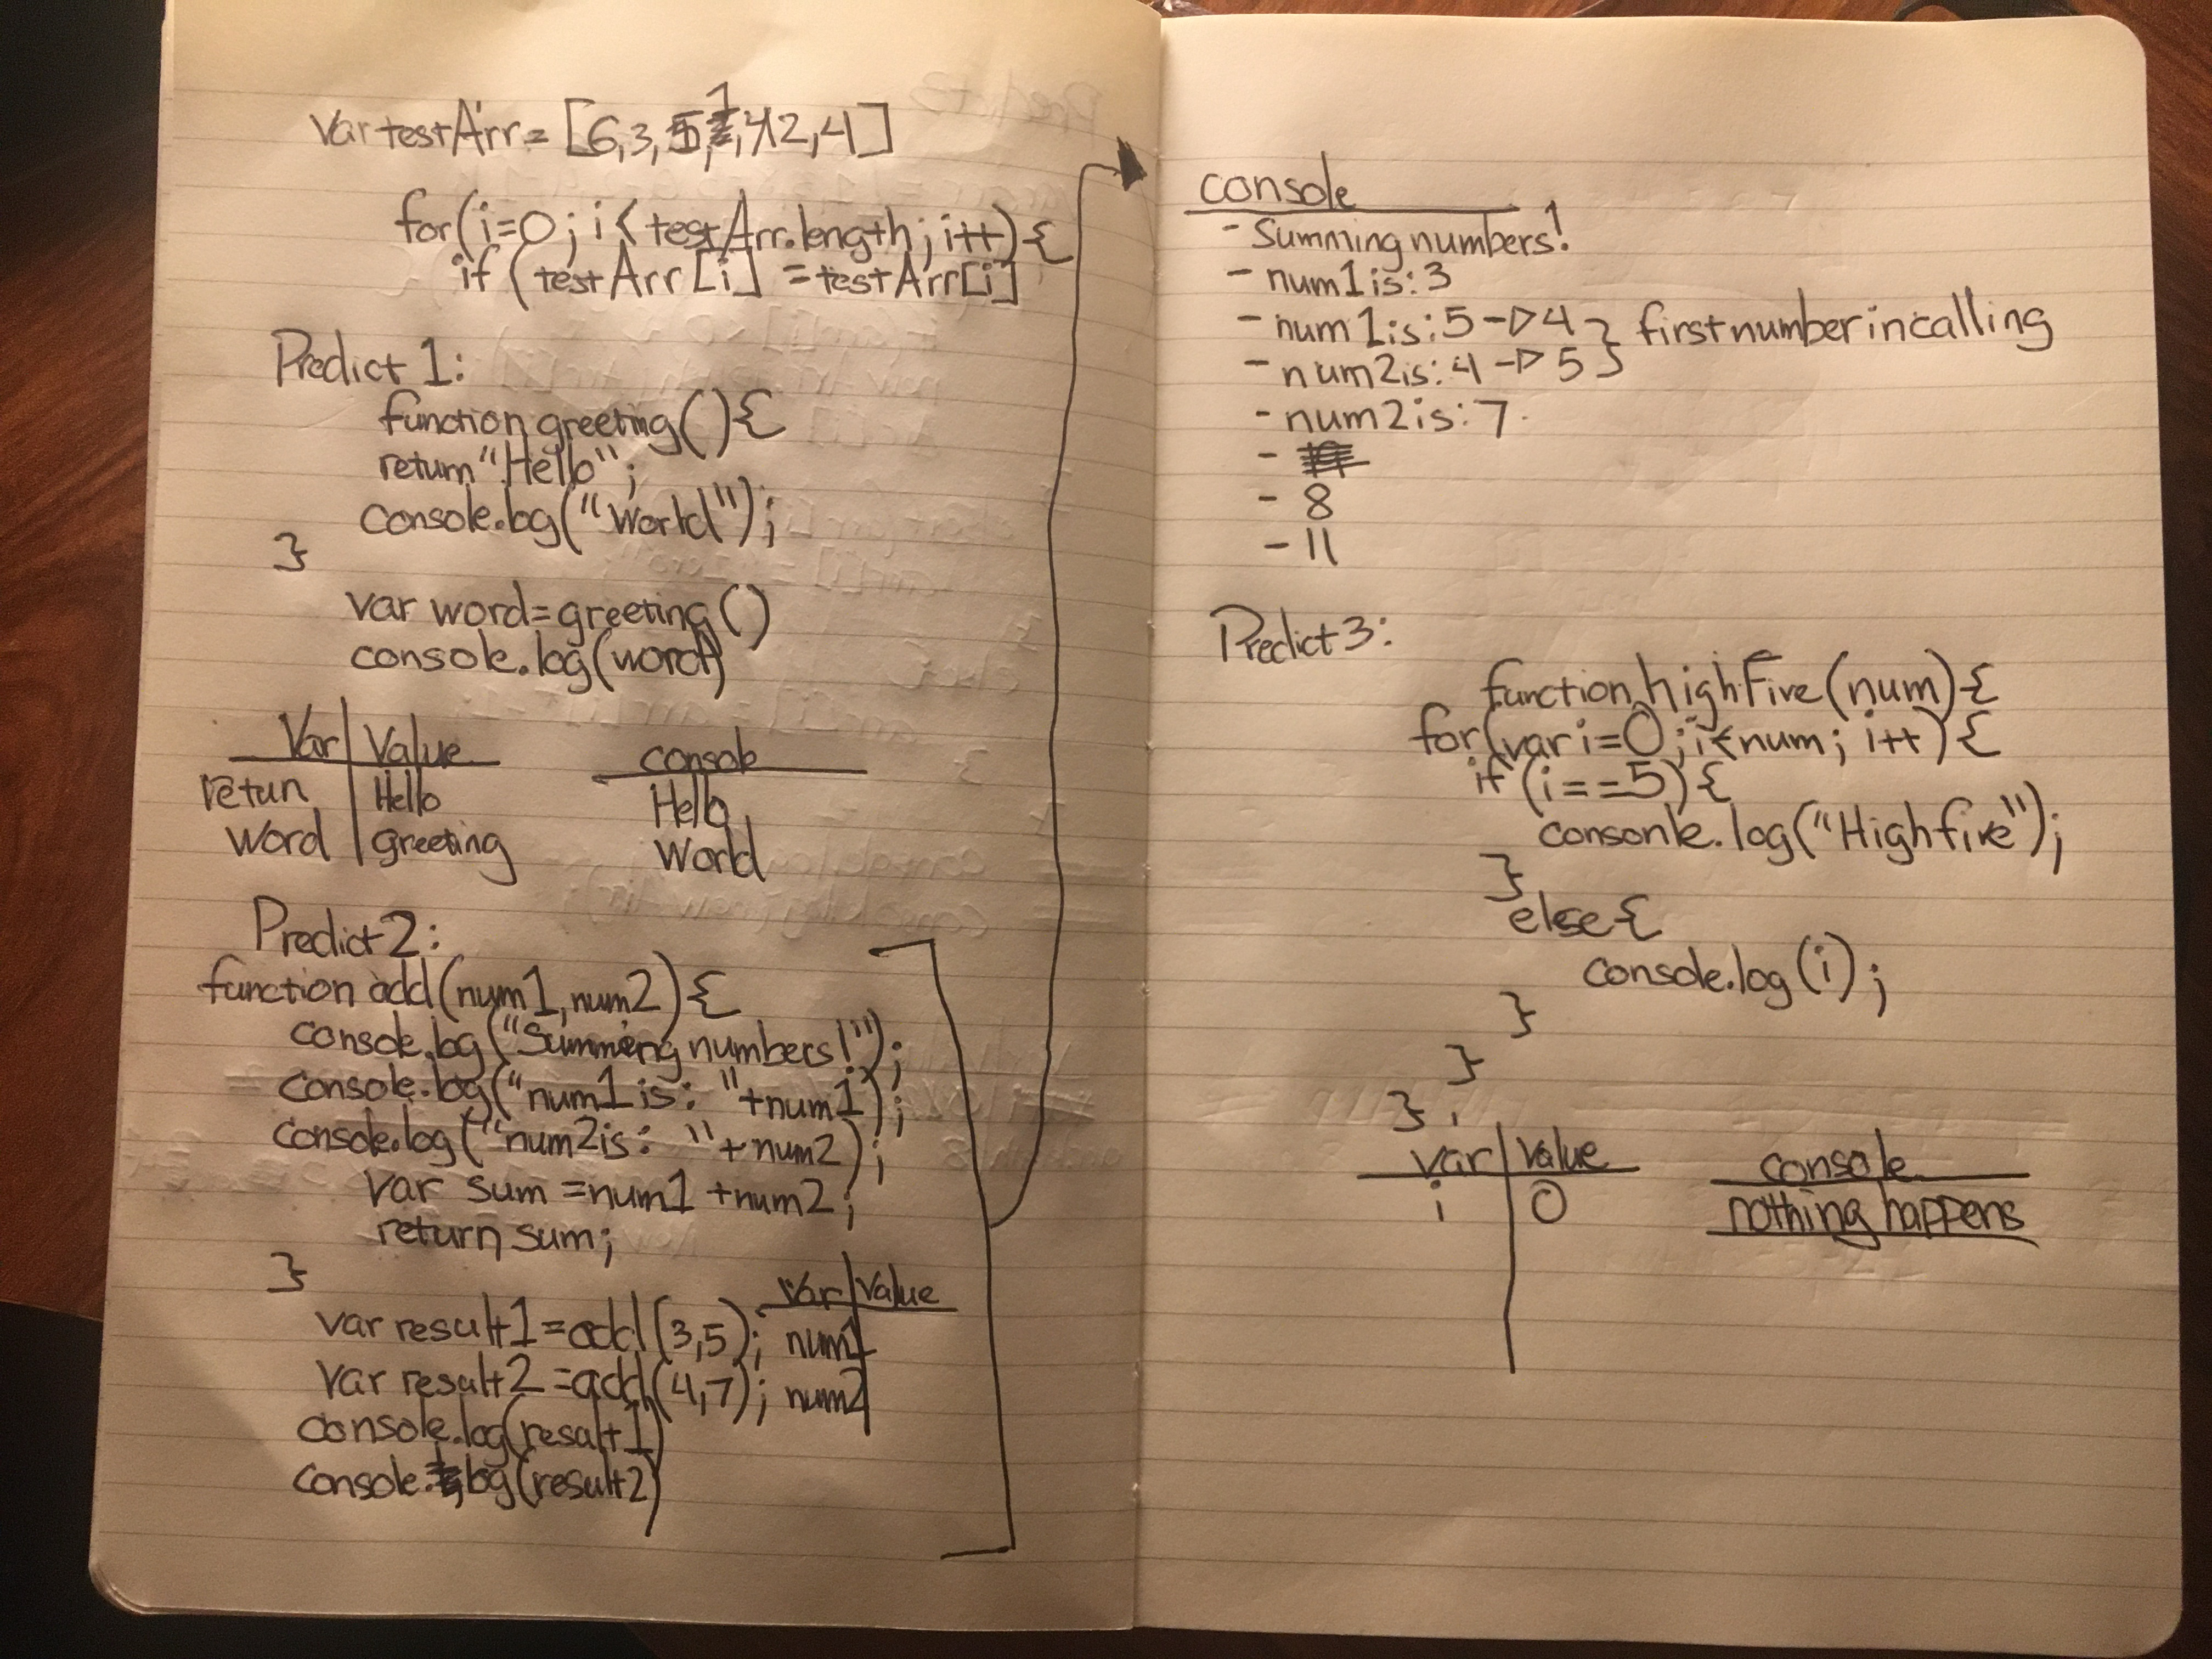 var testArr = [6,3,5,1,12,4]
for(i=0; i < testArr.length; i++){
if (testArr[i] = testArr[i]
Predict 1:
function greeting(){
return "Hello";
console.log("World");
}
var word=greeting()
console.log(word)
Var Value
retun Hello
word greeting
console
Hello
World
Predict 2:
function add(num1,num2){
console.log("Summing numbers!");
console.log("num1 is: "+num1);
console.log("num2is: "+num2);
var sum =num1 +num2;
return sum;
}
var result1=add(3,5);
var result2=add(4,7);
console.log(result1)
console.log(result2)
Var Value
num1
num2
console
- Summing numbers!
- num1 is: 3
- num1is: 5 -▷ 4 } first number in calling
- num2is: 4 -▷ 5 }
- num2 is: 7
-
- 8
- 11
Predict 3:
function highFive(num){
for(var i=0; i<num; i++){
if (i==5){
consonle.log("Highfive");
}
else{
console.log(i);
}
}
}
var Value
i 0
console
nothing happens